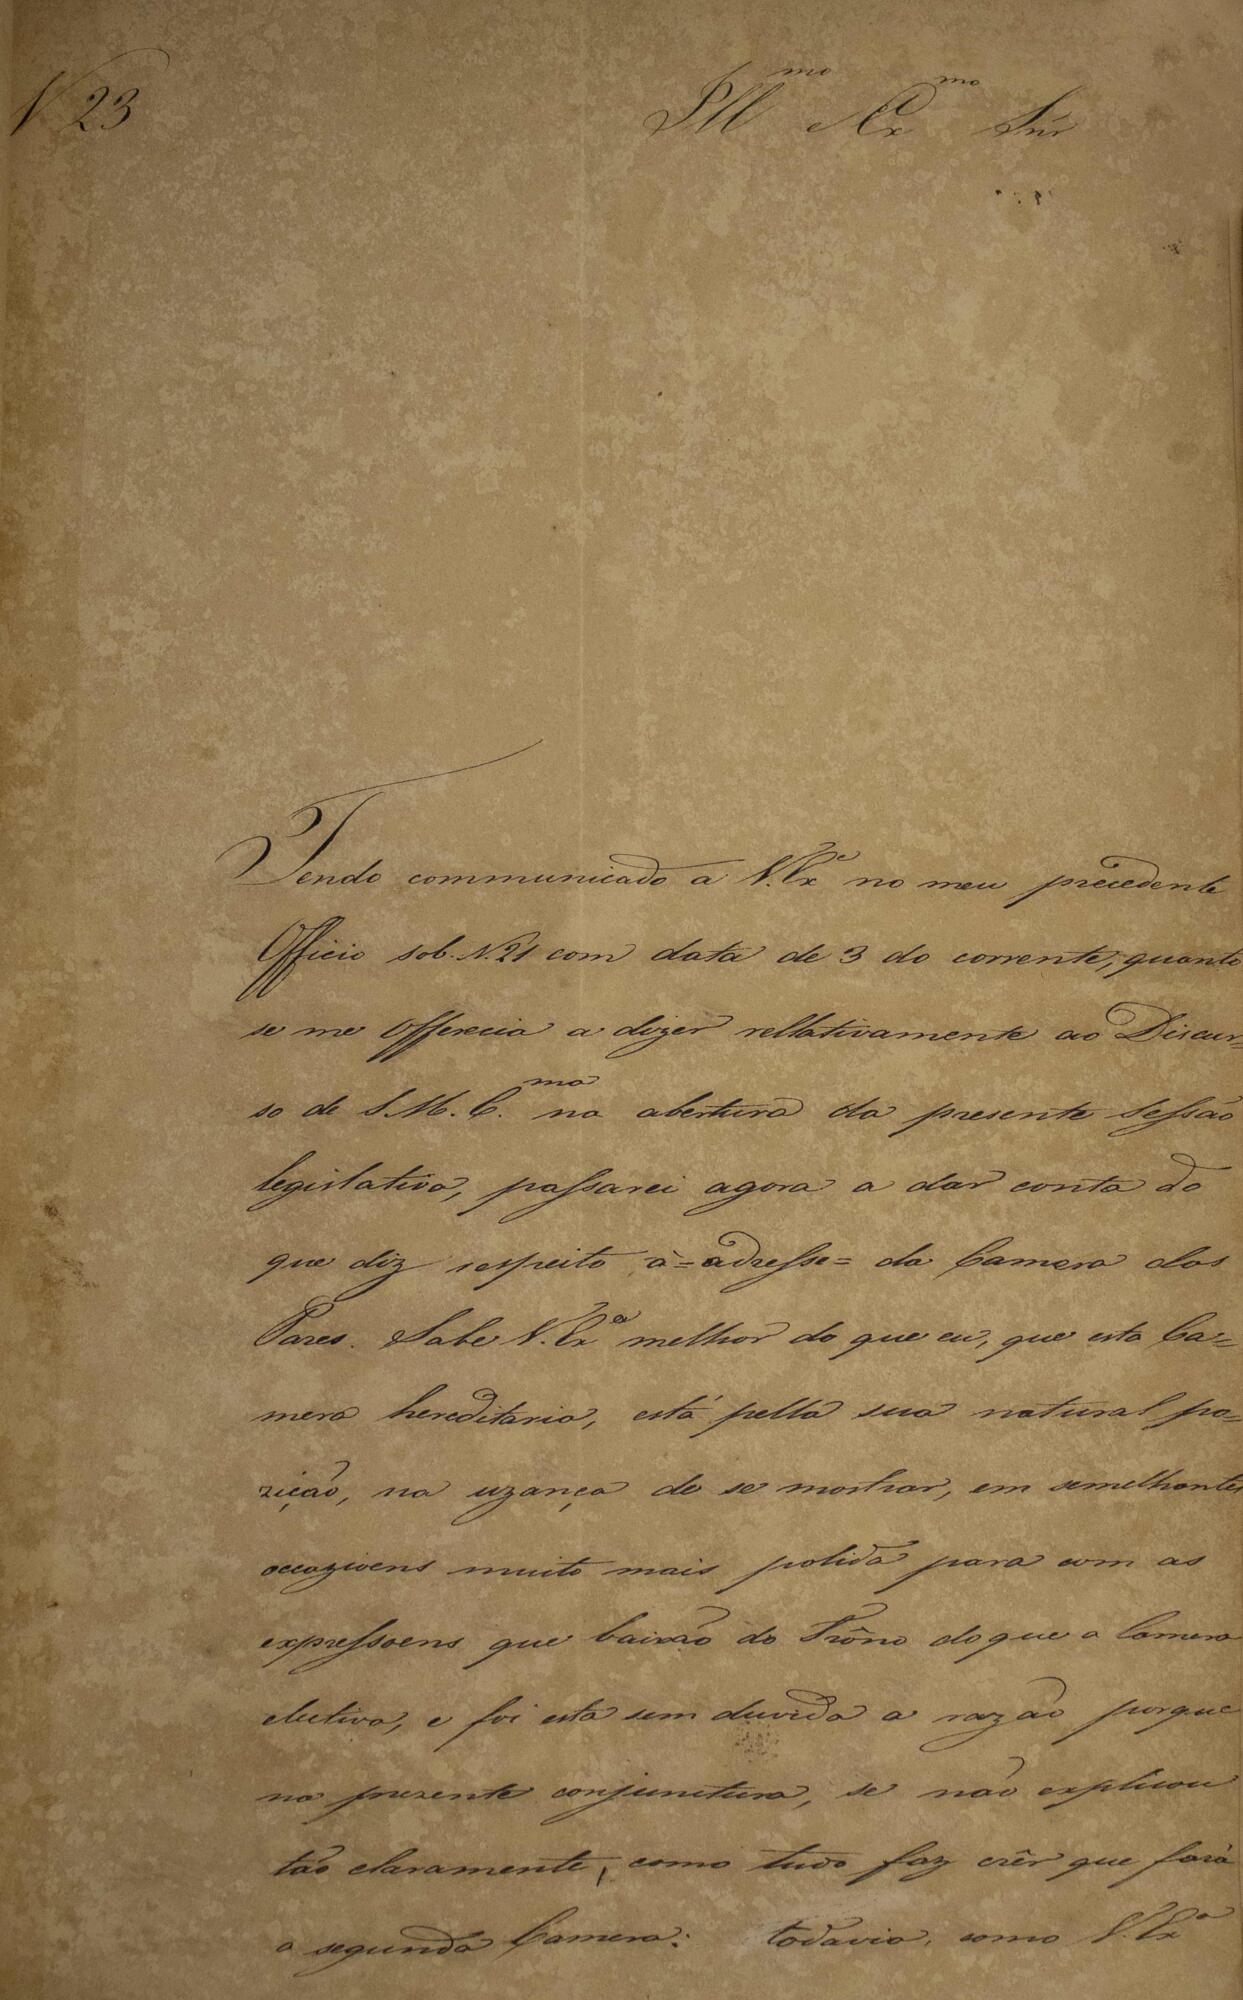 N 23
Ill.mo e Ex.mo Snr
Tendo communicado a V. Ex.a no meu precedente
Officio sob N. 21 com data de 3 do corrente, quanto
se me offerecia a dizer rellativamente ao Discur=
so de S. M. C.ma na abertura da presente Sessão
legislativa, passarei agora a dar conta do
que diz respeito à = adresse = da Camera dos
Pares. Sabe V. Ex.a melhor do que eu, que esta Ca=
mera hereditaria, está pella sua natural po=
zição, na uzança de se mostrar, em semelhantes
occazioens muito mais polida para com as
expressoens que baixão do Trôno do que a Camera
electiva, e foi esta sem duvida a razão porque
na prezente conjunctura, se não explicou
tão claramente, como tudo faz crêr que fará
a segunda Camera: todavia, como V. Ex.a